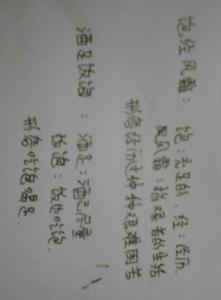 饱经风霜：
饱：充足的，经：经历。
风霜：指艰苦的生活
形容经历过种种艰难困苦
酒足饭饱：酒足：酒已尽量
饭饱：饭也吃饱。
形容吃饱喝足